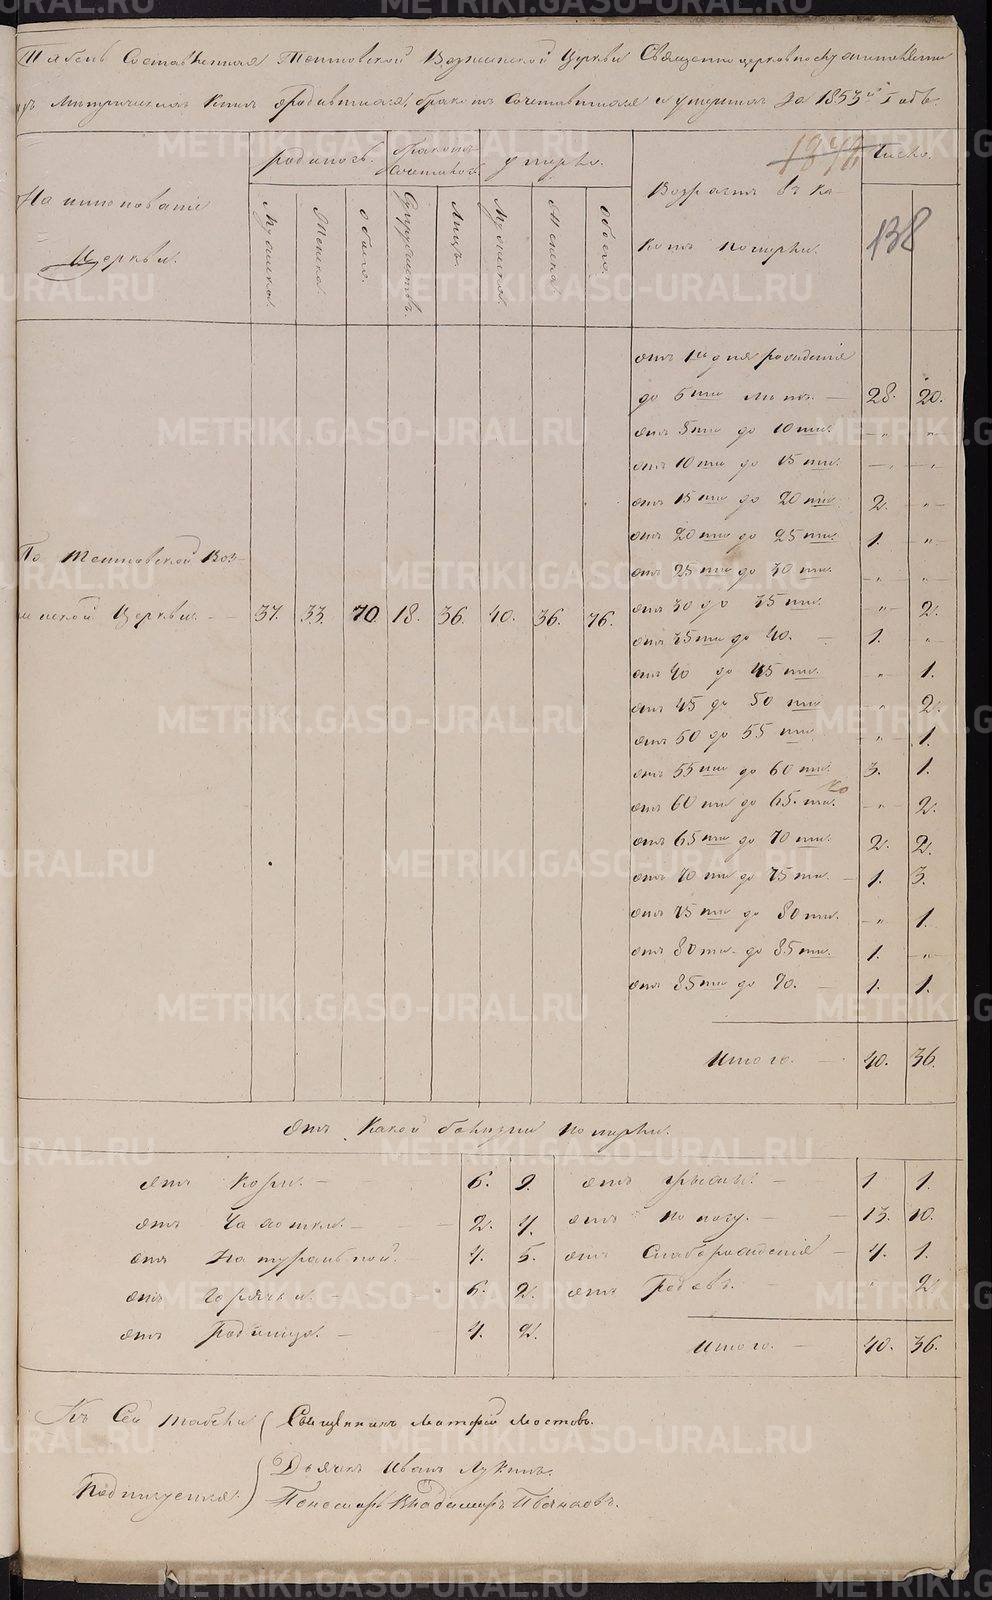 Табель Составленная Теитовской Церкви Священно церковно служителями
изъ Метрическихъ Книгъ родившихся, бракомъ сочетавшихся и умершихъ за 1853й Годъ.
родилось.
бракомъ сочеталось.
умерло.
1848
Число.
138
Наименованіе
Церкви.
Мужеска.
Женска.
обоего.
Супружествъ.
Лицъ.
Мужеска.
Женска.
обоего.
Возрастъ въ ка-
комъ померли.
отъ 1го дня рожденія
до 5ти лѣтъ. — 28. 20.
отъ 5ти до 10ти. „ „
отъ 10ти до 15ти. „ „
отъ 15ти до 20ти. 2. „
отъ 20ти до 25ти. 1. „
отъ 25ти до 30ти. „ „
отъ 30 до 35ти. „ 2.
отъ 35ти до 40. — 1. „
отъ 40 до 45ти. „ 1.
отъ 45 до 50ти „ 2.
отъ 50 до 55ти. „ 1.
отъ 55ти до 60ти. 3. 1.
отъ 60ти до 65ти. „ 2.
отъ 65ти до 70ти. 2. 2.
отъ 70ти до 75ти. — 1. 3.
отъ 75ти до 80ти. „ 1.
отъ 80ти до 85ти. 1. „
отъ 85ти до 90. — 1. 1.
По Церкви. — 37. 33. 70. 18. 36. 40. 36. 76.
Итого. — 40. 36.
Отъ Какой болѣзни померли.
отъ Кори. — 6. 9.
отъ Чахотки. — 2. 4.
отъ Натуральной. 4. 5.
отъ Горячки. — 6. 2.
отъ Родимца. — 4. 2.
отъ Грыжи. — 1 1.
отъ поносу. — 13. 10.
отъ Слаборожденія — 4. 1.
отъ Родовъ. — „ 2
Итого. — 40. 36.
Къ Сей табели
Подписуемся
Священникъ Матфей Мостовъ.
Дьячекъ Иванъ Лукинъ.
Пономарь Владимиръ
METRIKI.GASO-URAL.RU